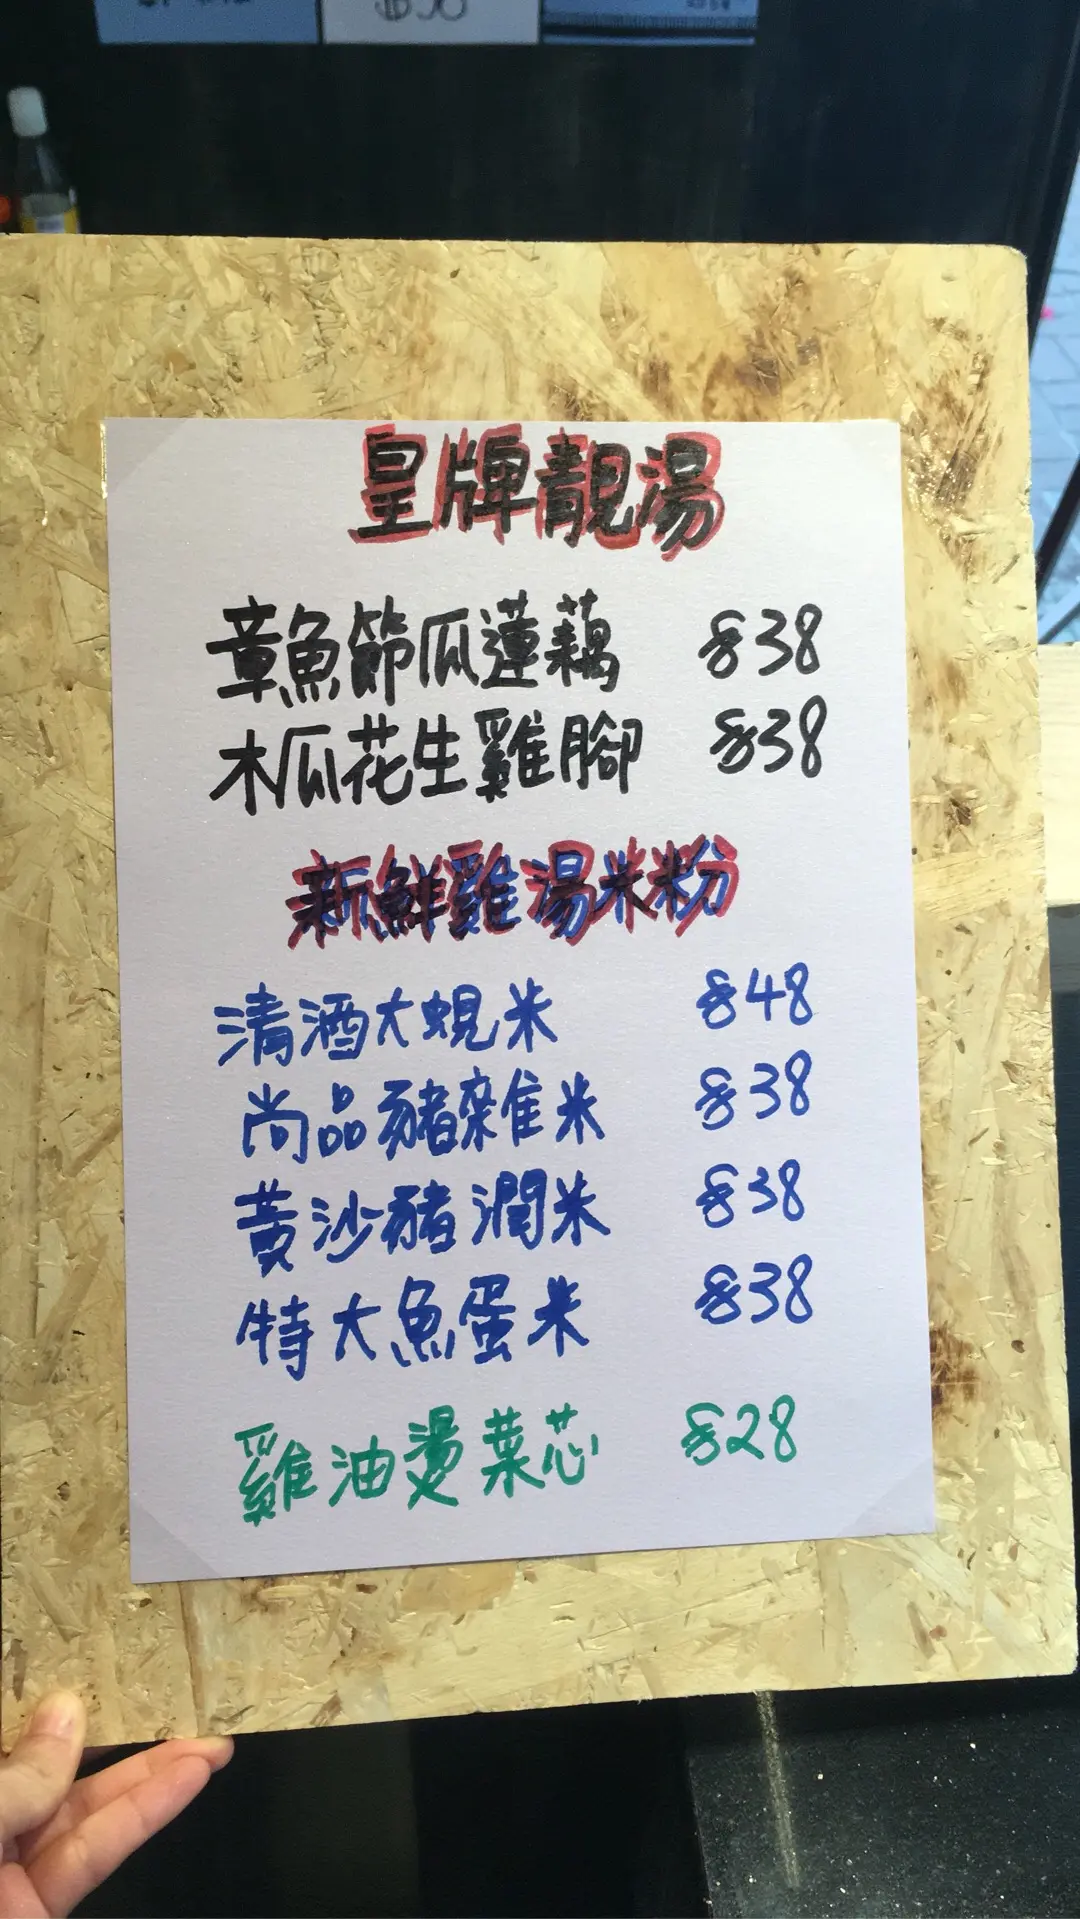 皇牌靚湯
章魚節瓜蓮藕 $38
木瓜花生雞腳 $38
新鮮雞湯米粉
清酒大蜆米 $48
尚品豬雜米 $38
黃沙豬潤米 $38
特大魚蛋米 $38
雞油燙菜芯 $28